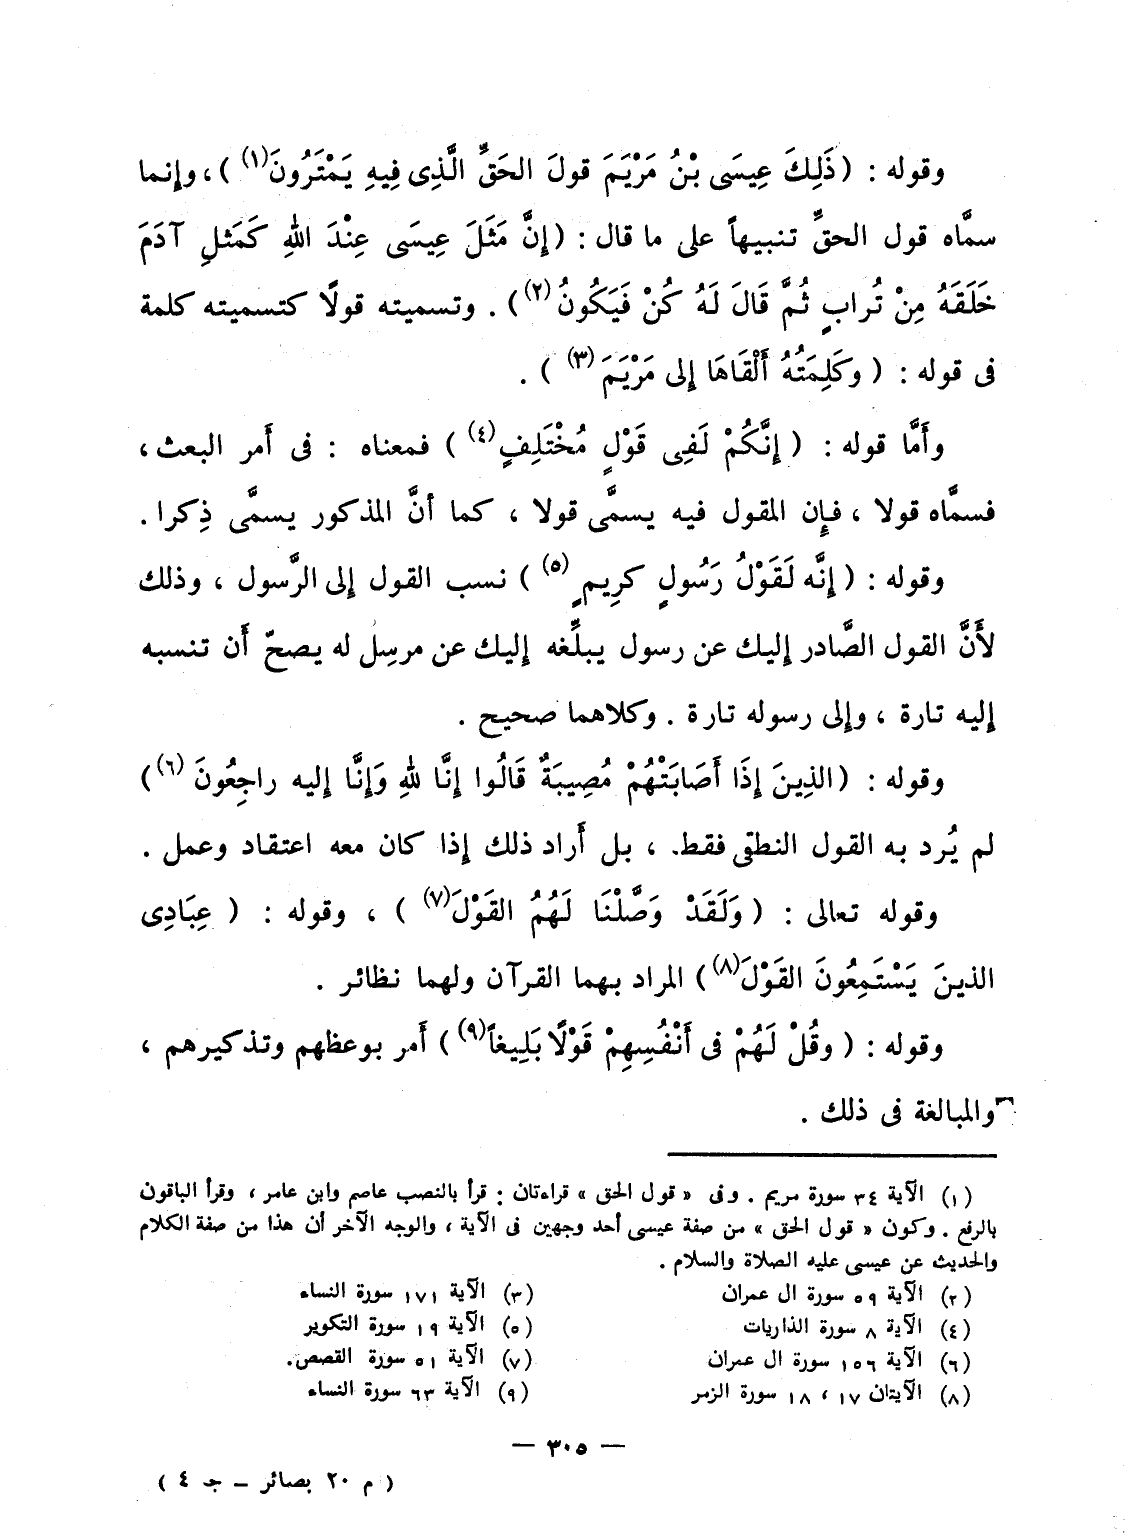 وقوله : ( ذَلِكَ عِيسَى بْنُ مَرْيَمَ قولَ الحَقِّ الَّذِى فِيهِ يَمْتَرُونَ(١) ) ، وإنما
سمَّاه قول الحقِّ تنبيهاً على ما قال : (إنَّ مَثَلَ عِيسَى عِنْدَ اللهِ كَمَثلِ آدَمَ
خَلَقَهُ مِنْ تُرابٍ ثُمَّ قَالَ لَهُ كُنْ فَيَكُونُ(٢)) . وتسميته قولًا كتسميته كلمة
فى قوله : ( وكَلِمَتُهُ أَلْقَاهَا إلى مَرْيَمَ(٣) ) .
وأَمَّا قوله : ( إنَّكُمْ لَفِى قَوْلٍ مُخْتَلِفٍ(٤) ) فمعناه : فى أَمر البعث ،
فسمَّاه قولا ، فإِن المقول فيه يسمَّى قولا ، كما أنَّ المذكور يسمَّى ذِكرا .
وقوله : ( إِنَّه لَقَوْلُ رَسُولٍ كرِيمٍ(٥) ) نسب القول إلى الرَّسول ، وذلك
لأَنَّ القول الصَّادر إليك عن رسول يبلِّغه إليك عن مرسِل له يصحّ أَن تنسبه
إليه تارة ، وإلى رسوله تارة . وكلاهما صحيح .
وقوله : ( الذِينَ إِذَا أَصَابَتْهُمْ مُصِيبَةٌ قَالُوا إنَّا للهِ وَإنَّا إليه راجِعُونَ(٦))
لم يُرد به القول النطقى فقط ، بل أَراد ذلك إذا كان معه اعتقاد وعمل .
وقوله تعالى : ( وَلَقَدْ وَصَّلْنَا لَهُمُ القَوْلَ(٧) ) ، وقوله : ( عِبَادِى
الذينَ يَسْتَمِعُونَ القَوْلَ(٨)) المراد بهما القرآن ولهما نظائر .
وقوله : ( وقُلْ لَهُمْ فى أَنْفُسِهِمْ قَوْلًا بَلِيغاً(٩)) أَمر بوعظهم وتذكيرهم ،
والمبالغة فى ذلك .
(١) الآية ٣٤ سورة مريم . وفى « قول الحق » قراءتان : قرأ بالنصب عاصم وابن عامر ، وقرأ الباقون
بالرفع . وكون « قول الحق » من صفة عيسى أحد وجهين فى الآية ، والوجه الآخر أن هذا من صفة الكلام
والحديث عن عيسى عليه الصلاة والسلام .
(٢) الآية ٥٩ سورة ال عمران (٣) الآية ١٧١ سورة النساء
(٤) الآية ٨ سورة الذاريات (٥) الآية ١٩ سورة التكوير
(٦) الآية ١٥٦ سورة ال عمران (٧) الآية ٥١ سورة القصص.
(٨) الآيتان ١٧ ، ١٨ سورة الزمر (٩) الآية ٦٣ سورة النساء
— ٣٠٥ —
( م ٢٠ بصائر – جـ ٤ )